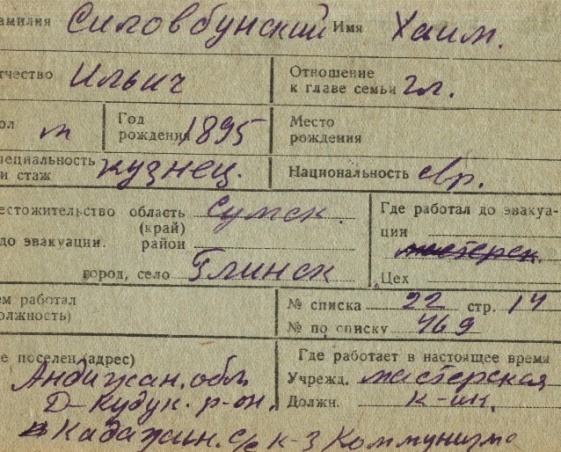 амилия Силовбунский Имя Хаим.
тчество Ильич Отношение к главе семьи гл.
ол м Год рождения 1895 Место рождения
пециальность и стаж кузнец. Национальность евр.
естожительство область (край) Сумск. Где работал до эвакуа-
до эвакуации. район ции мастерск.
город, село Глинск Цех
ем работал № списка 22 стр. 14
олжность) № по списку 469
е поселен (адрес) Где работает в настоящее время
Андижан. обл Учрежд. мастерская
Д-Кудук. р-он. Должн.
с/с к-з Коммунизм